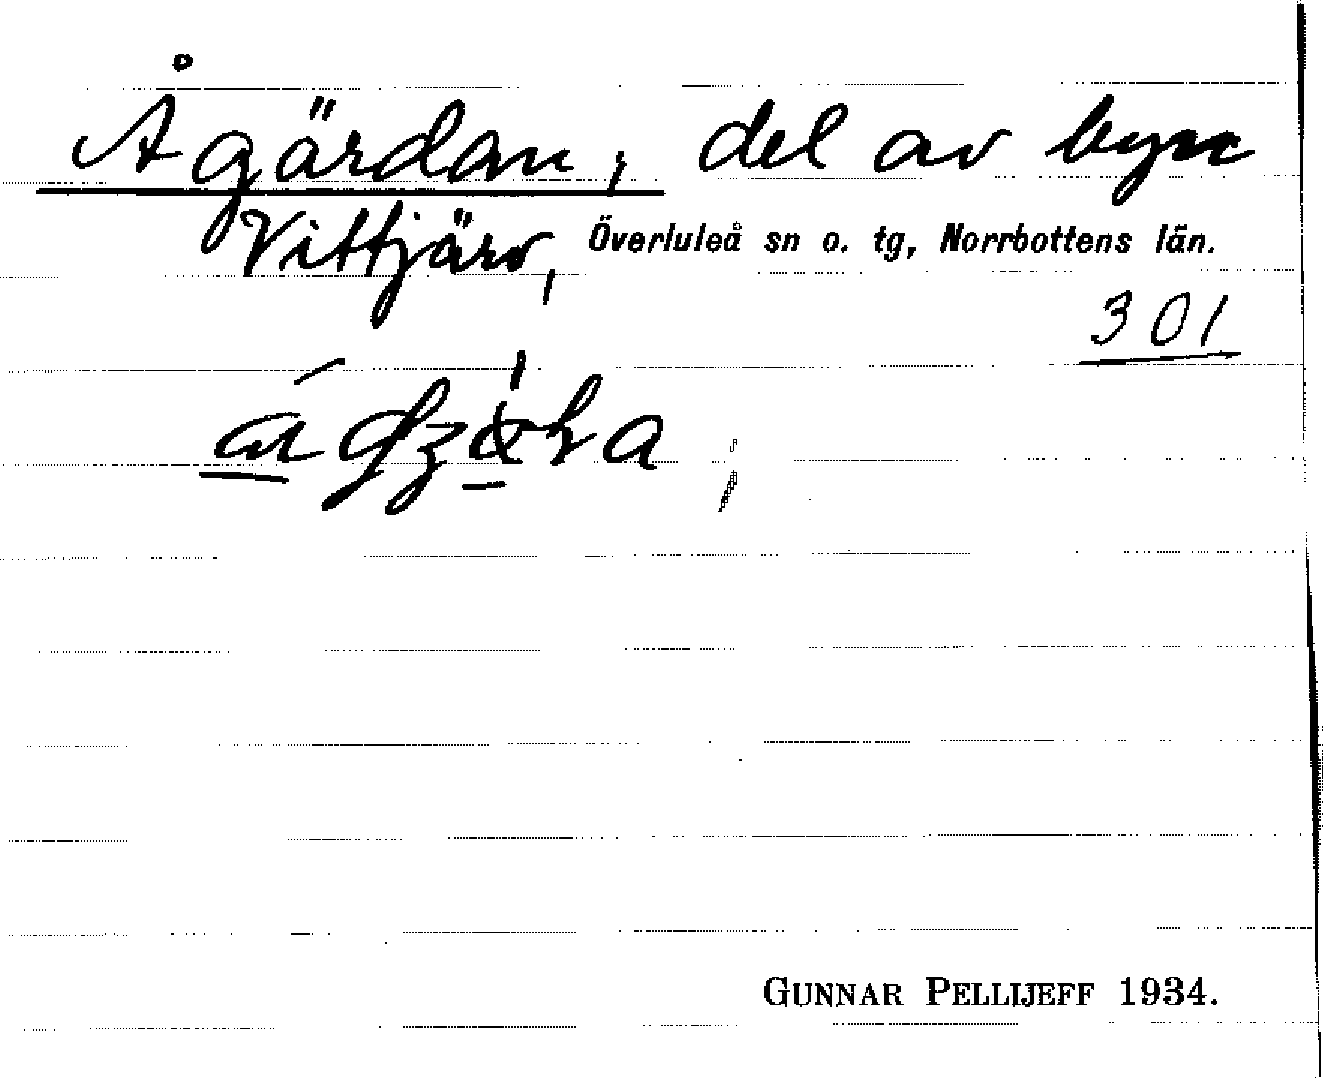 Ågärdan, del av byn
Vittjärv, Överluleå sn o. tg, Norrbottens län.
301
GUNNAR PELLIJEFF 1934.